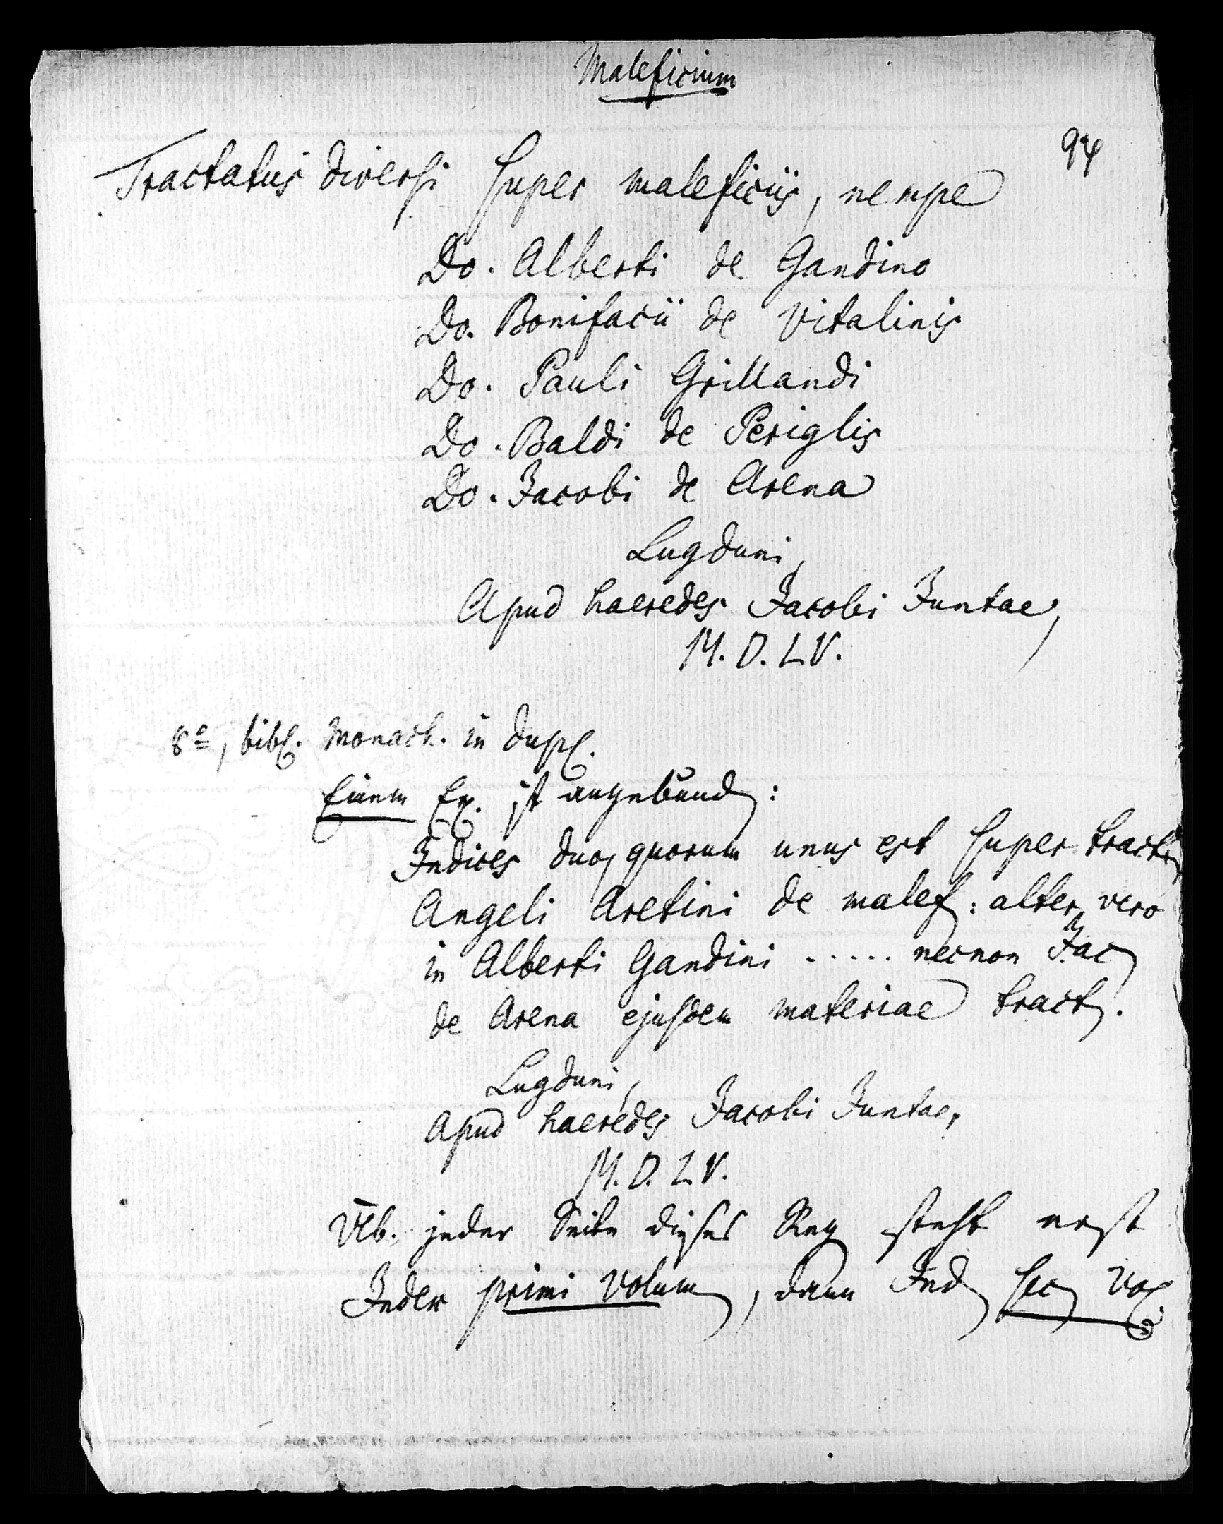 Maleficium
94
Tractatus diversi super maleficiis, nempe
Do. Alberti de Gandino
Do. Bonifacii de Vitalinis
Do. Pauli Grillandi
Do. Baldi de Periglis
Do. Jacobi de Arena
Lugduni,
Apud haeredes Jacobi Juntae,
M. D. L V.
8º, bibl. Monach. in dupl.
Einem Ex. ist angebund:
Indices duo, quorum unus est super tract.
Angeli Aretini de malef: alter vero
in Alberti Gandini ..... necnon Jac
de Arena ejusdem materiae tract.
Lugduni,
Apud haeredes Jacobi Juntae,
M. D. L V.
Üb. jeder Seite dieses Reg steht erst
Index primi Volum, dann Ind sec Vol.